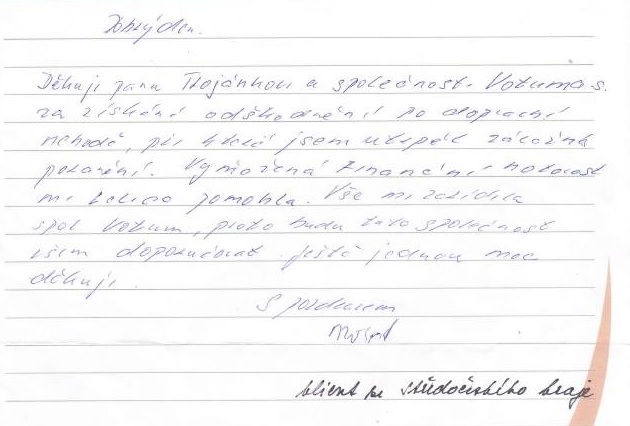 Dobrý den.
Děkuji panu Trojánkovi a společnosti Votuma s.
za získání odškodnění po dopravní
nehodě, při které jsem utrpěl závažná
poranění. Vymožená finanční hotovost
mi velice pomohla. Vše mi zařídila
spol Votum, proto budu tuto společnost
všem doporučovat. Ještě jednou moc
děkuji.
S pozdravem
klient ze Středočeského kraje